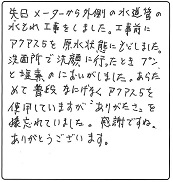 先日メーターから外側の水道管の
水もれ工事をしました。工事前に
アクアスSを原水状態にどしました。
洗面所で洗顔に行ったときプン
と塩素のにおいがしました。あらた
めて普段なにげなくアクアスSを
使用していますが"ありがたさ"を
嬉忘れていました。感謝ですね。
ありがとうございます。